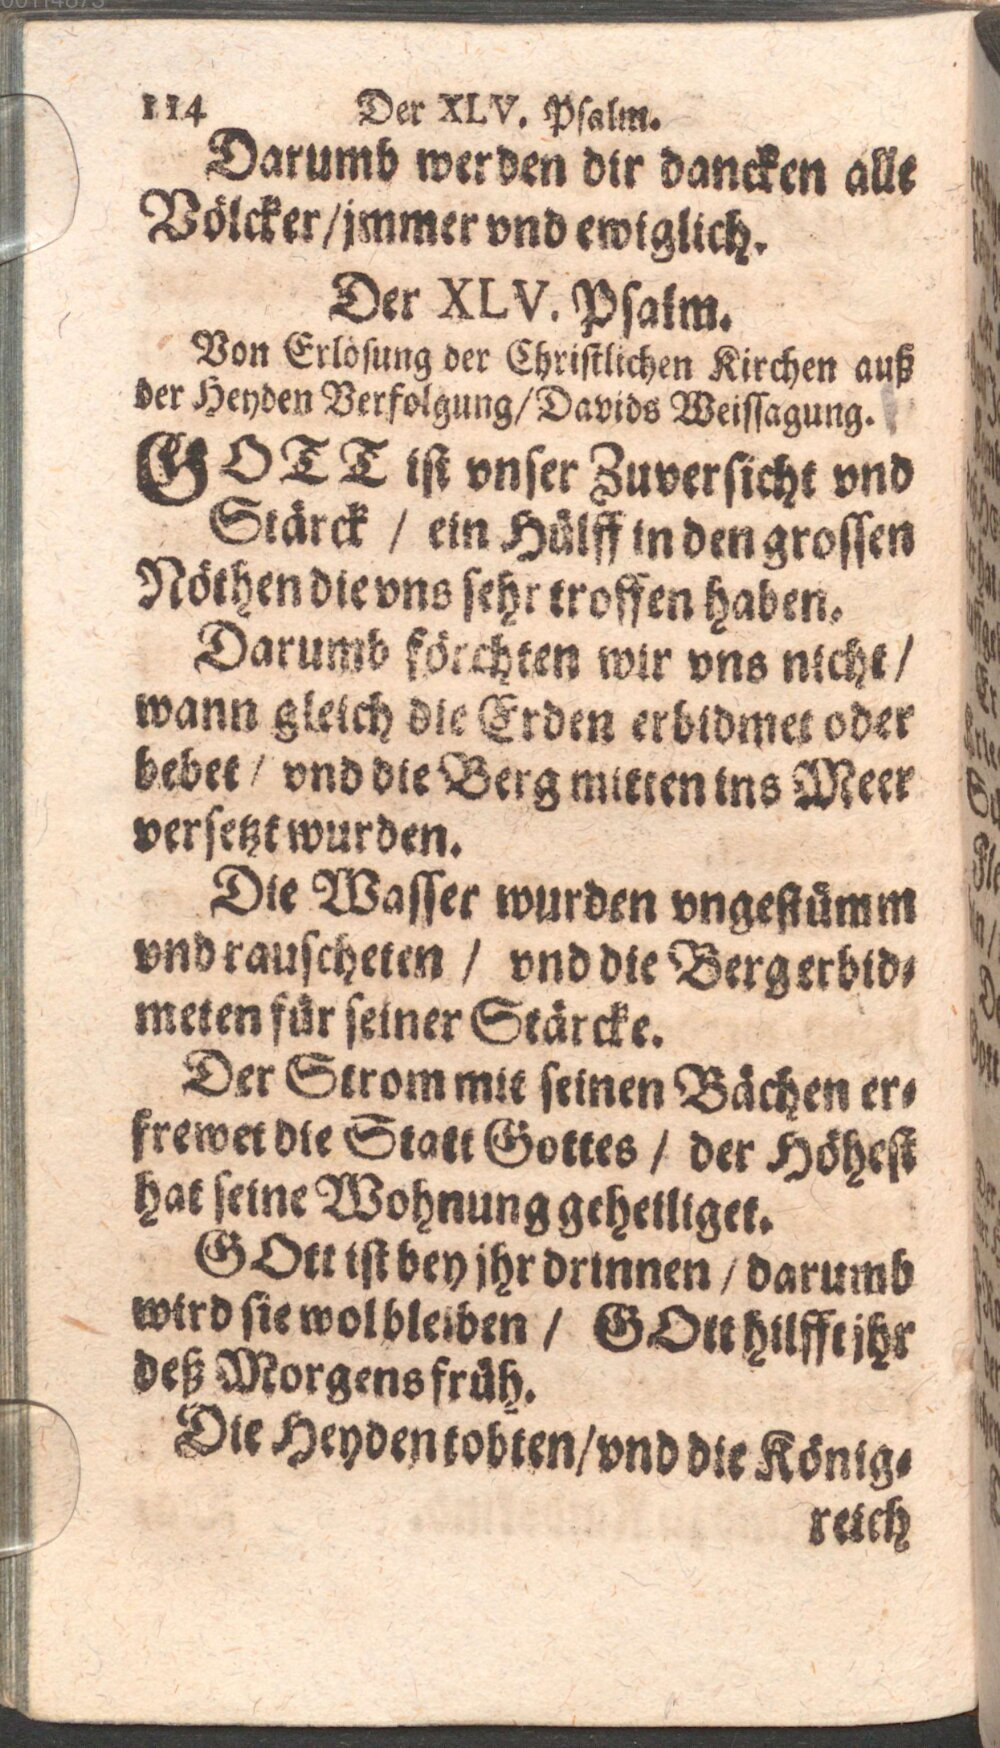 114 Der XLV. Psalm.
Darumb werden dir dancken alle
Völcker/jmmer vnd ewiglich.
Der XLV. Psalm.
Von Erlösung der Christlichen Kirchen auß
der Heyden Verfolgung/Davids Weissagung.
GOTT ist vnser Zuversicht vnd
Stärck / ein Hülff in den grossen
Nöthen die vns sehr troffen haben.
Darumb förchten wir vns nicht/
wann gleich die Erden erbidmet oder
bebet / vnd die Berg mitten ins Meer
versetzt wurden.
Die Wasser wurden vngestümm
vnd rauscheten / vnd die Berg erbid-
meten für seiner Stärcke.
Der Strom mit seinen Bächen er-
frewet die Statt Gottes / der Höhest
hat seine Wohnung geheiliget.
GOtt ist bey jhr drinnen / darumb
wird sie wol bleiben / GOtt hilfft jhr
deß Morgens früh.
Die Heyden tobten/vnd die König-
reich